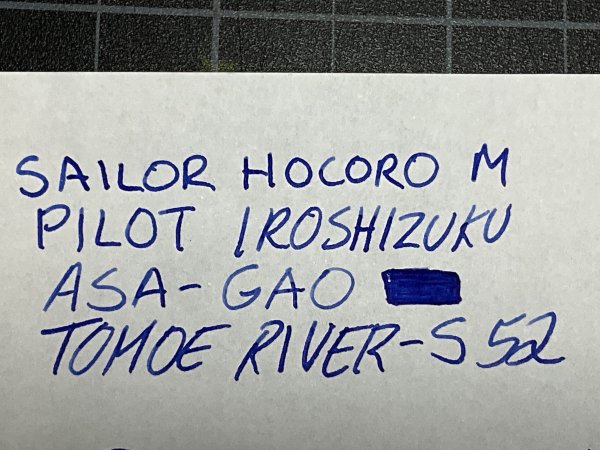 SAILOR HOCORO M
PILOT IROSHIZUKU
ASA-GAO
TOMOE RIVER-S 52